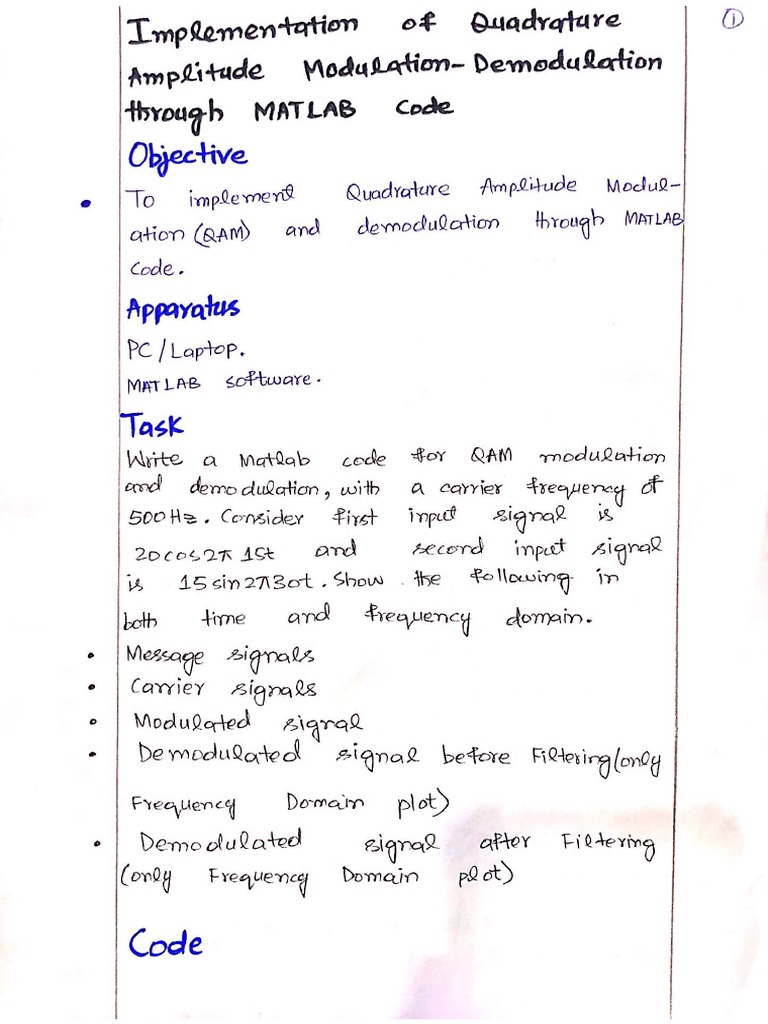 ①
Implementation of Quadrature
Amplitude Modulation-Demodulation
through MATLAB Code
Objective
• To implement Quadrature Amplitude Modul-
ation (QAM) and demodulation through MATLAB
Code.
Apparatus
PC/Laptop.
MATLAB software.
Task
Write a Matlab code for QAM modulation
and demodulation, with a carrier frequency of
500Hz. Consider first input signal is
20cos2π15t and second input signal
is 15sin2π30t. Show the following in
both time and frequency domain.
• Message signals
• Carrier signals
• Modulated signal
• Demodulated signal before Filtering(only
Frequency Domain plot)
• Demodulated signal after Filtering
(only Frequency Domain plot)
Code